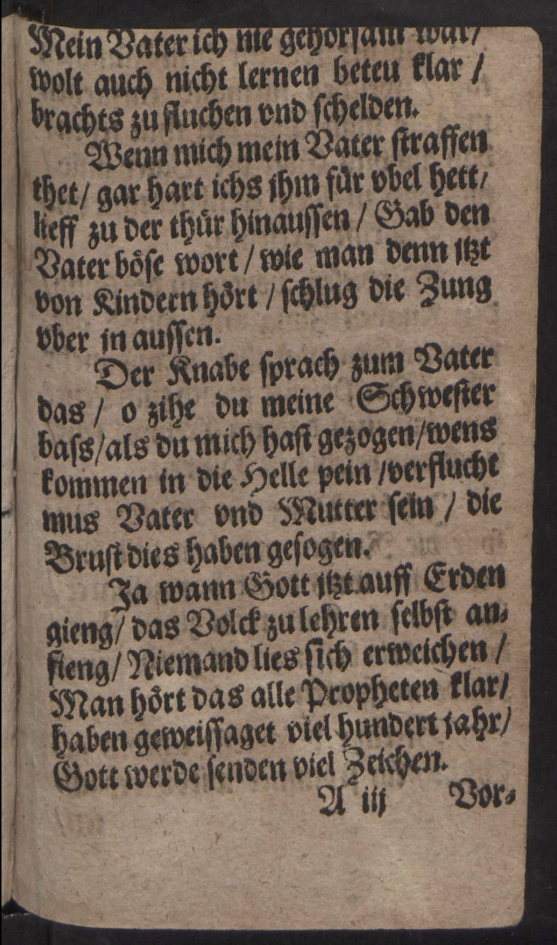 Mein Vater ich nie gehorsam war/
wolt auch nicht lernen beteu klar /
brachts zu fluchen vnd schelden.
Wenn mich mein Vater straffen
thet/ gar hart ichs jhm für vbel hett/
lieff zu der thür hinaussen / Gab den
Vater böse wort / wie man denn jtzt
von Kindern hört / schlug die Zung
vber jn aussen.
Der Knabe sprach zum Vater
das / o zihe du meine Schwester
bass/als du mich hast gezogen/wens
kommen in die Helle pein /verflucht
mus Vater vnd Mutter sein / die
Brust dies haben gesogen.
Ja wann Gott jtzt auff Erden
gieng/ das Volck zu lehren selbst an-
fieng/ Niemand lies sich erweichen /
Man hört das alle Propheten klar/
haben geweissaget viel hundert jahr/
Gott werde senden viel Zeichen.
A iij Vor-